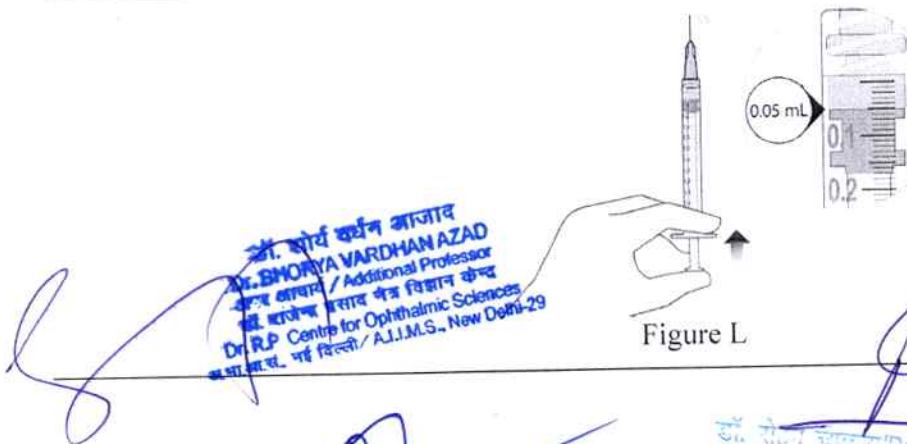 0.05 mL
0.1
0.2
Figure L
डॉ. शोर्य वर्धन आजाद
Dr. SHORYA VARDHAN AZAD
आचार्य / Additional Professor
डॉ. राजेन्द्र प्रसाद नेत्र विज्ञान केन्द्र
Dr. R.P. Centre for Ophthalmic Sciences
अ.भा.आ.सं., नई दिल्ली / A.I.I.M.S., New Delhi-29
डॉ.